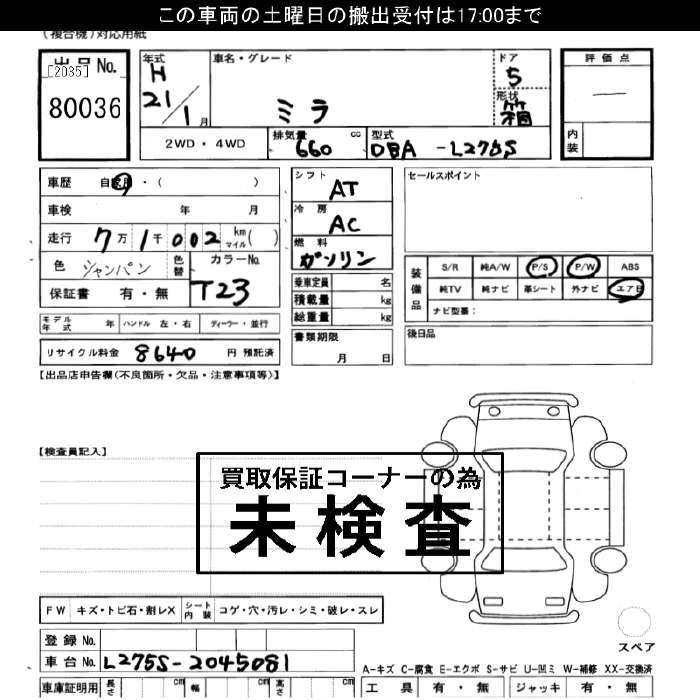 この車両の土曜日の搬出受付は17:00まで
(複合機)対応用紙
出品No.
[2035]
80036
年式
H
21/1月
車名・グレード
ミラ
ドア
5
形状
箱
2WD・4WD
排気量 660 cc
型式 DBA -L275S
評価点
―
内装
車歴 自家用・( )
車検 年 月
走行 7万1千002 km マイル( )
色 シャンパン
色替
カラーNo.
T23
保証書 有・無
モデル年式 年
ハンドル 左・右
ディーラー・並行
リサイクル料金 8640 円 預託済
シフト
AT
冷房
AC
燃料
ガソリン
乗車定員 名
積載量 kg
総重量 kg
書類期限
月 日
セールスポイント
装備品
S/R 純A/W P/S P/W ABS
純TV 純ナビ 革シート 外ナビ エアB
ナビ型番:
後日品
【出品店申告欄(不良箇所・欠品・注意事項等)】
【検査員記入】
買取保証コーナーの為
未検査
FW キズ・トビ石・割レX
シート内装 コゲ・穴・汚レ・シミ・破レ・スレ
登録No.
車台No. L275S-2045081
車庫証明用 長さ cm 幅 cm 高さ cm
スペア
A-キズ C-腐食 E-エクボ S-サビ U-凹ミ W-補修 XX-交換済
工具 有・無 ジャッキ 有・無